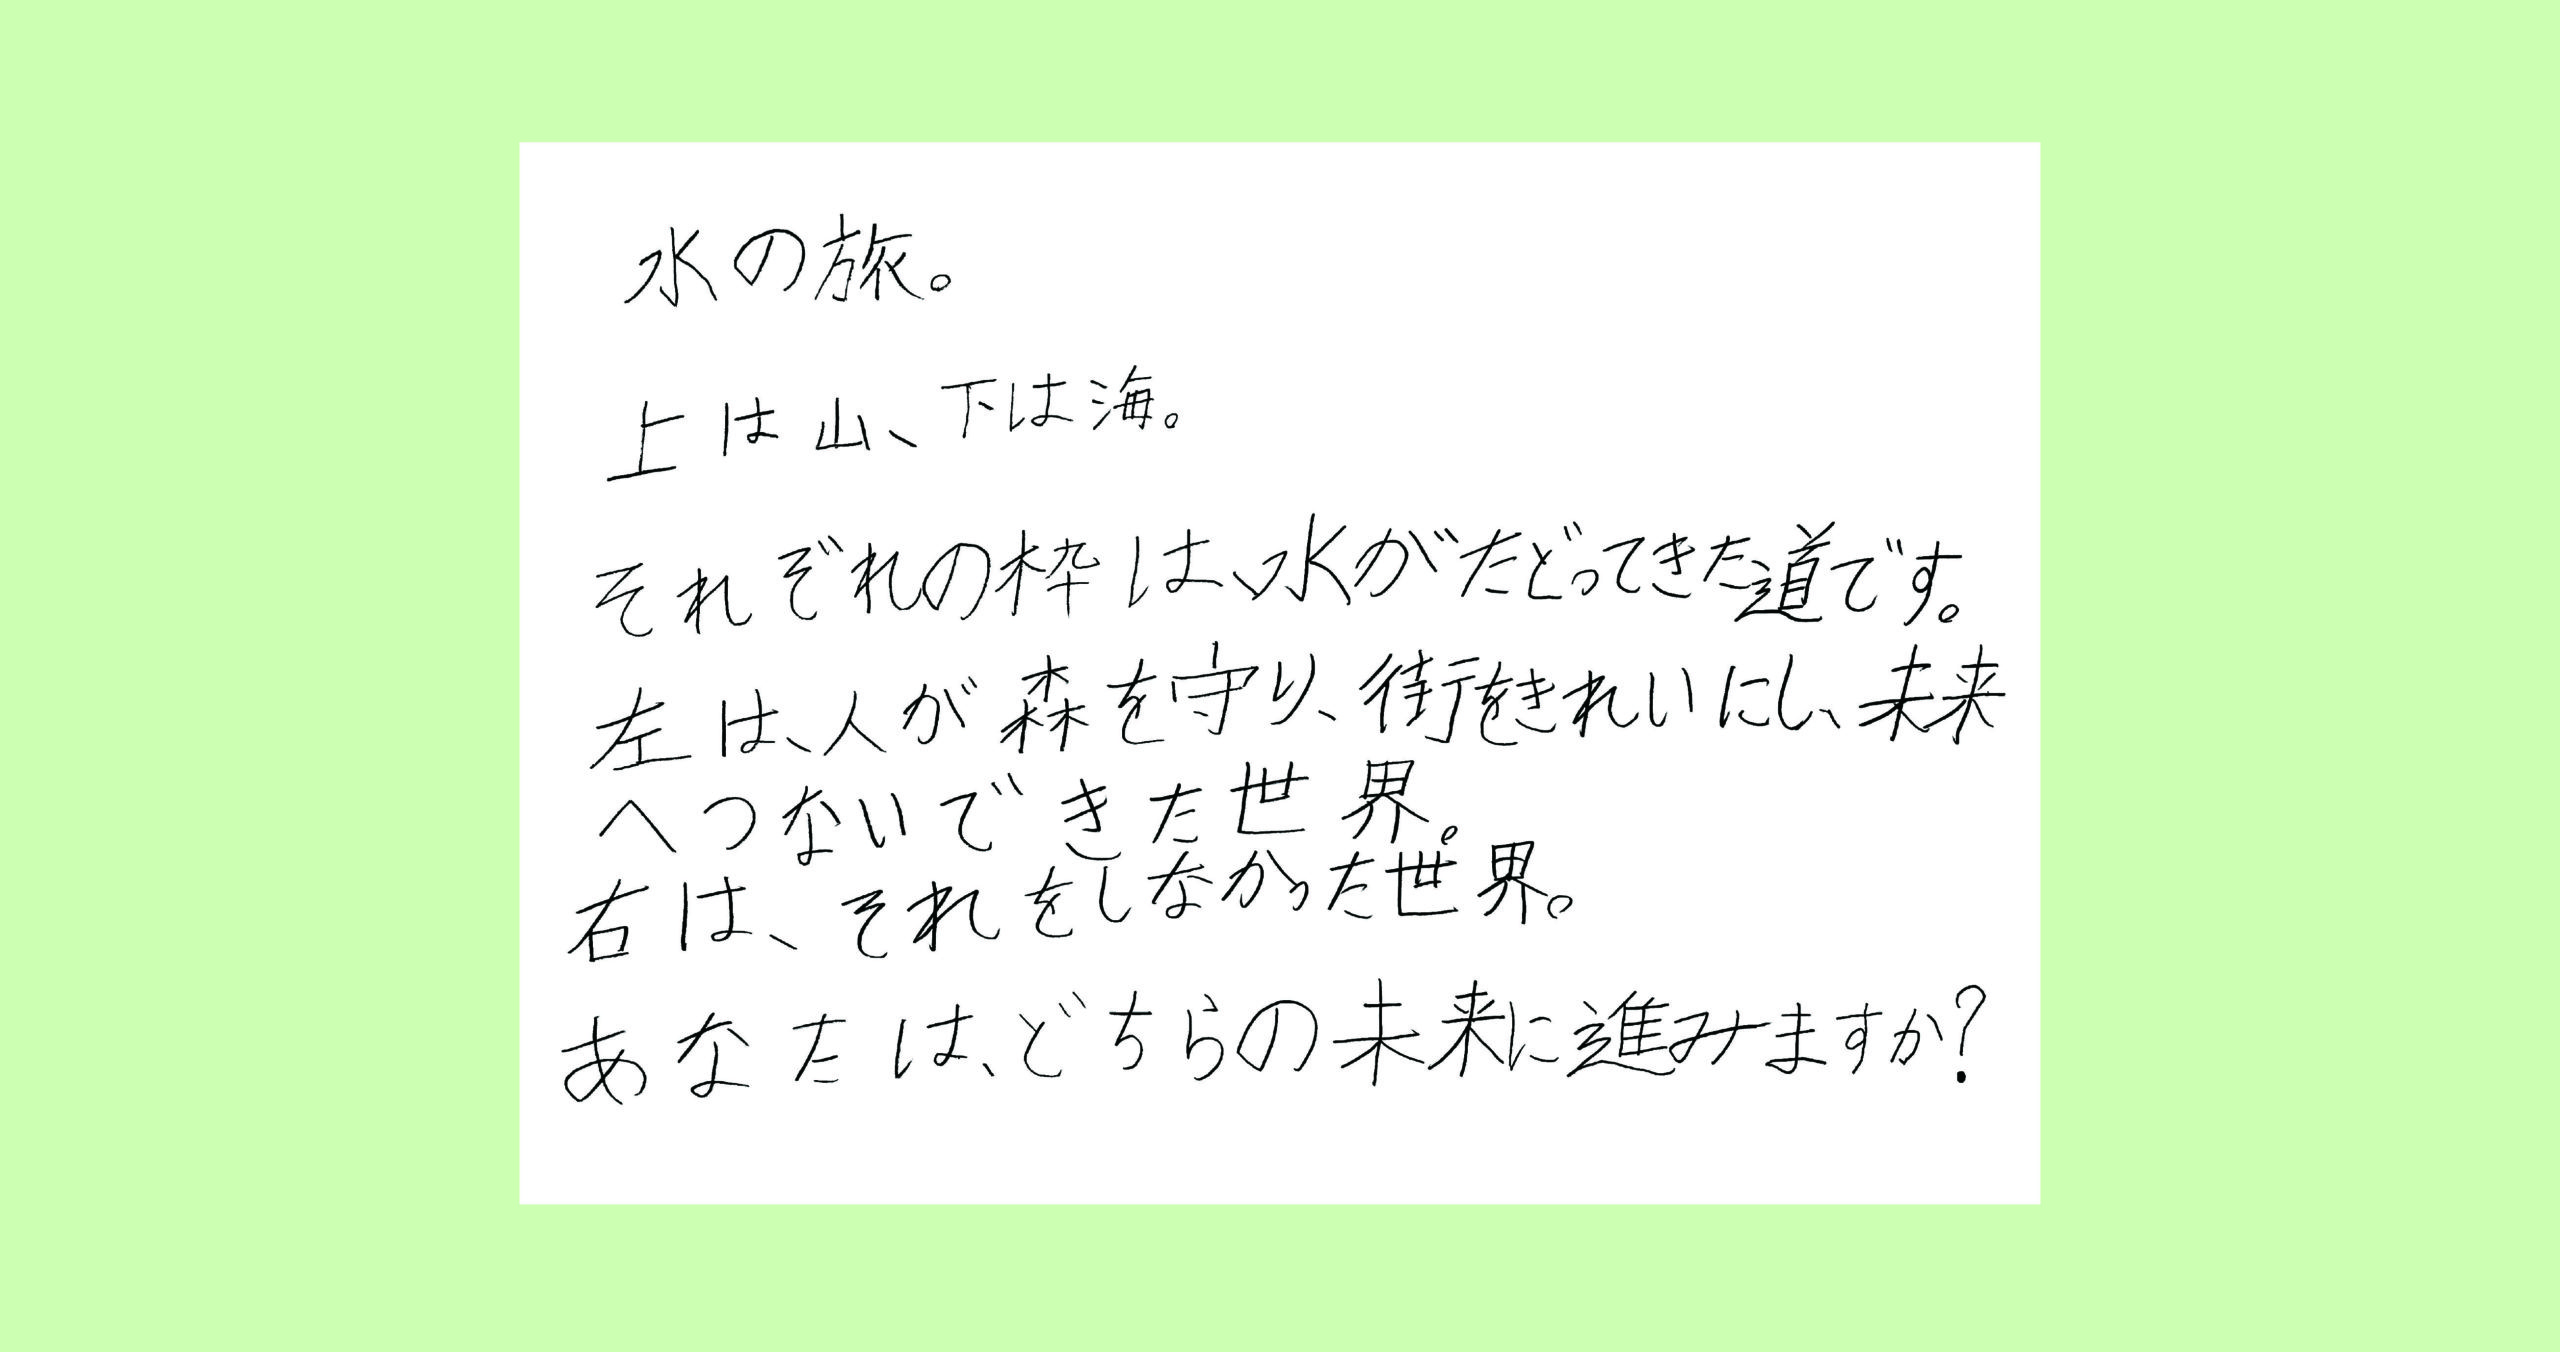 水の旅。
上は山、下は海。
それぞれの枠は、水がたどってきた道です。
左は、人が森を守り、街をきれいにし、未来
へつないできた世界。
右は、それをしなかった世界。
あなたは、どちらの未来に進みますか?